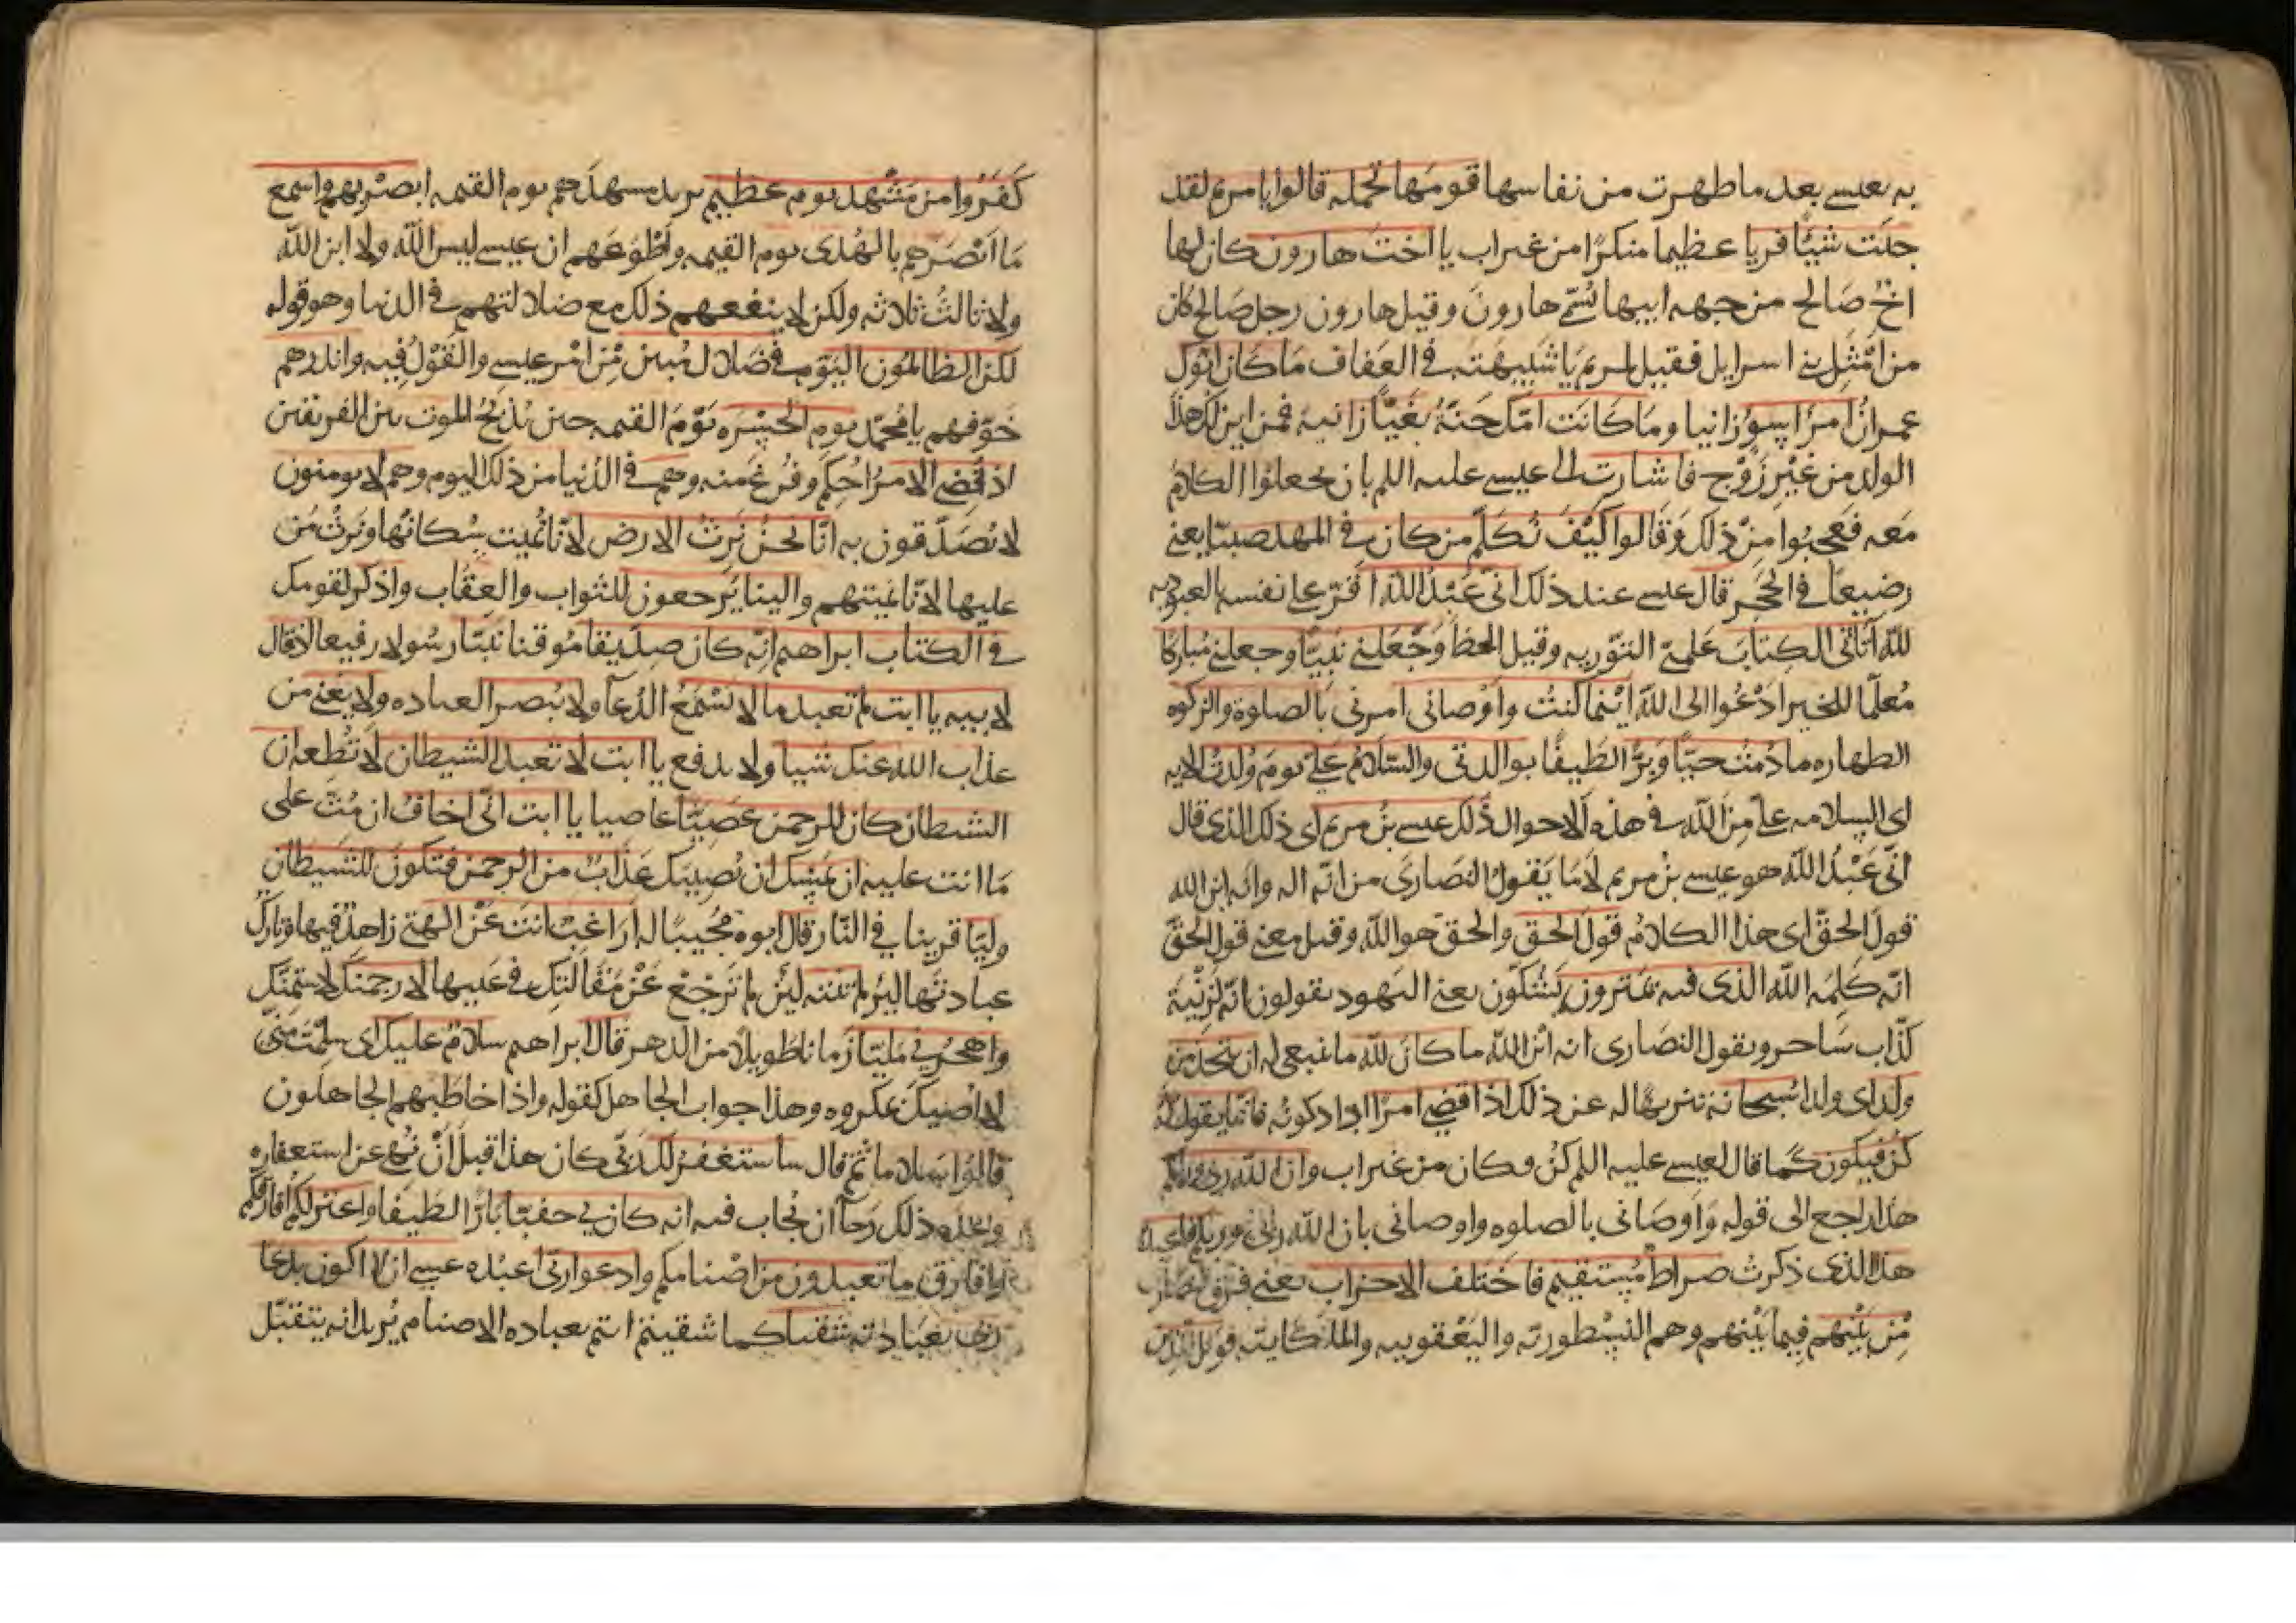 به بعيسى بعد ما طهرت من نفاسها قومها تحمله قالوا يا مريم لقد
جئت شيئًا فريا عظيما منكرًا من غير اب يا اخت هارون كان لها
اخٌ صَالح من جهه ابيها يُسمّى هارونَ وقيل هارون رجل صَالح كان
من امْثَلِ بنى اسرايل فقيل لمريم يا شبيهته فى العَفاف مَا كَان ابوك
عمرانُ امرَا سوءٍ زانيا ومَا كانَت امّك حَنّةُ بَغيّا زانيه فمن اين لك هذا
الولد من غيْرِ زَوْج فاشارت الى عيسى عليه السلم بان يجعلوا الكلامَ
مَعه فعَجبُوا مِنْ ذلك وَقَالوا كَيْفَ نُكَلّمُ من كان فى المهد صبيّا يعنى
رضيعًا فى الحَجْر قال عيسى عند ذلك انى عَبْدُ اللّٰه اقرّ على نفسه بالعبوديه
للّٰه آتانى الكِتابَ عَلّمَنى التّوريه وقيل الخط وَجَعَلنى نَبيّا وجعلنى مُباركا
مُعلّما للخير ادْعُوا الى اللّٰه ايْنما كنتُ واَوْصانى امرنى بالصلوة والزكوه
الطهاره ما دُمتُ حيّا وَبَرًّا لطَيفًا بوالدتى والسّلامُ علىّ يَومَ وُلدتُ الايه
اى السلامه علىّ مِنَ اللّٰه فى هذه الاحوال ذلك عيسى بنُ مريم اى ذلك الذى قال
انّى عَبْدُ اللّٰه هو عيسى بنُ مريم لا مَا يَقولُ النصَارى من انّه اله وانه ابن الله
قولَ الحقّ اى هذا الكلامُ قولُ الحق والحقّ هو اللّٰه وقيل معنى قول الحقّ
انّه كلمَه اللّٰه الذى فيه يمترون يَشُكّون يعنى اليهود يقولون انّه لزنْيَة
كذّاب سَاحر ويقول النصَارى انه ابْن اللّٰه ما كانَ للّٰه ما ينبغى له ان يتخذ من
ولد اى ولدا سُبحانه تنزيهًا له عن ذلك اذا قضى امرًا اراد كونَه فانّما يقول له
كُنْ فيكون كما قال لعيسى عليه السلم كن فكان من غير اب وان اللّٰه ربى وربكم
هذا راجع الى قوله وَاَوصَانى بالصلوه واوصانى بان اللّٰه ربّى وربكم فاعبدوه
هذا الذى ذكرت صراطٌ مُستقيم فاختَلف الاحزاب يعنى فرق النصارى
مِن بَيْنهم فيما بَيْنهم وهم النسْطورته واليَعْقوبيه والملكايته فويل للذين
كَفَرُوا من مَشْهَد يوم عظيم يريد مشهدَهم يوم القيمه ابصرْ بهم واسمع
مَا اَبْصَرَهم بالهُدى يوم القيمه واَطْوعَهم ان عيسى ليس اللّٰه ولا ابن اللّٰه
ولا ثالثُ ثلاثه ولكن لا ينفعهم ذلك مع ضلالتهم فى الدنيا وهو قوله
لكن الظالمون اليَوْم فى ضلال مُبين مِنْ امْر عيسى والقَوْلُ فيه وانذرهم
خَوّفهم يا محُمّد يوم الحَسْرَه يَوْمَ القيمه حين يُذبحُ الموت بين الفريقين
اذ قُضى الامرُ اُحكم وفُرغَ منه وهم فى الدُنيا من ذلك اليوم وهم لا يومنون
لا يُصَدّقون به انّا نحنُ نَرثُ الارض لانّا نُميت سُكانهَا ونَرثُ مَن
عليها لانّا نميتهم والينا يُرجعون للثواب والعِقاب واذكر لقومك
فى الكتاب ابراهيم انّه كان صِدّيقا مُوقنا نبيّا رسُولا رفيعا اذ قال
لابيه يا ابت لم تعبد ما لا يَسْمَعُ الدُعآ ولا يُبصر العباده ولا يغنى من
عذاب الله عنك شيا ولا يدفع يا ابت لا تعبد الشيطان لا تُطعه ان
الشيطان كان للرحمن عصيّا عاصيا يا ابت انّى اخافُ ان مُتّ على
مَا انت عليه ان يمَسّك ان يُصيبك عَذابٌ من الرحمن فتكونَ للشيطان
وليّا قرينا فى النّار قال ابوه مجُيبًا له اَرَاغبٌ انتَ عَنْ الهتى زاهدٌ فيها وتارك
عبادتَها لئن لم تنته لئن لم تَرْجعْ عَنْ مَقَالتك فى عَيبها لارجمنك لاشتمنّك
واهجُرنى مَليّا زَمانا طويلا من الدهر قال ابراهيم سلامٌ عليك اى سلِمْتَ منّى
لا اصيبك بمكروه وهذا جواب الجاهل كقوله واذا خاطبَهم الجاهلون
قالوُا سلاما ثم قال ساستغفرُ لك رَبّى كان هذا قبلَ اَنْ نُهى عن استغفاره
وعده ذلك رَجآ ان يُجاب فيه انه كان بى حفيّا بَارًّا لطيفا واعتزلكم افارقكم
وافارق ما تعبدون من اصْنامكم وادعوا ربّى اعبُده عسى ان لا اكون بدعآ
ربى بعبادته شقيا كما شقيتم انتم بعباده الاصنام يُريد انه يتقبّل